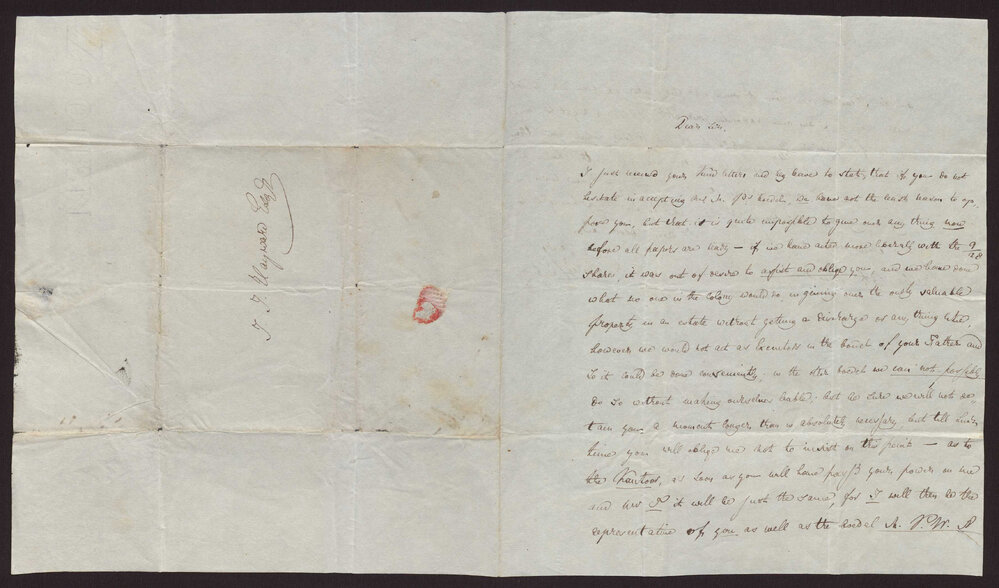 T. F. Maynard Esqr
Dear Sir,
I just received your kind letters and beg leave to state, that if you do not
hesitate in accepting this boedel, we have not the least reason to op,
pose you, but that it is quite impossible to give over any thing now
before all papers are ready – if we have acted more liberally with the 9/28
shares, it was out of desire to assist and oblige you, and we have done
what no one in the Colony would do in giving over the only valuable
property in an estate without getting a discharge or any thing else,
however we would not act as Executors in the boedel of your Father and
so it could be done conveniently; in the other boedel we can not possibly
do so without making ourselves liable; but be sure we will not de,
tain you a moment longer than is absolutely necessary but till
time you will oblige me not to insist on this point – as to
the as soon as you will have pass'd your power on me
and it will be just the same, for I will then be the
representative of you as well as the boedel